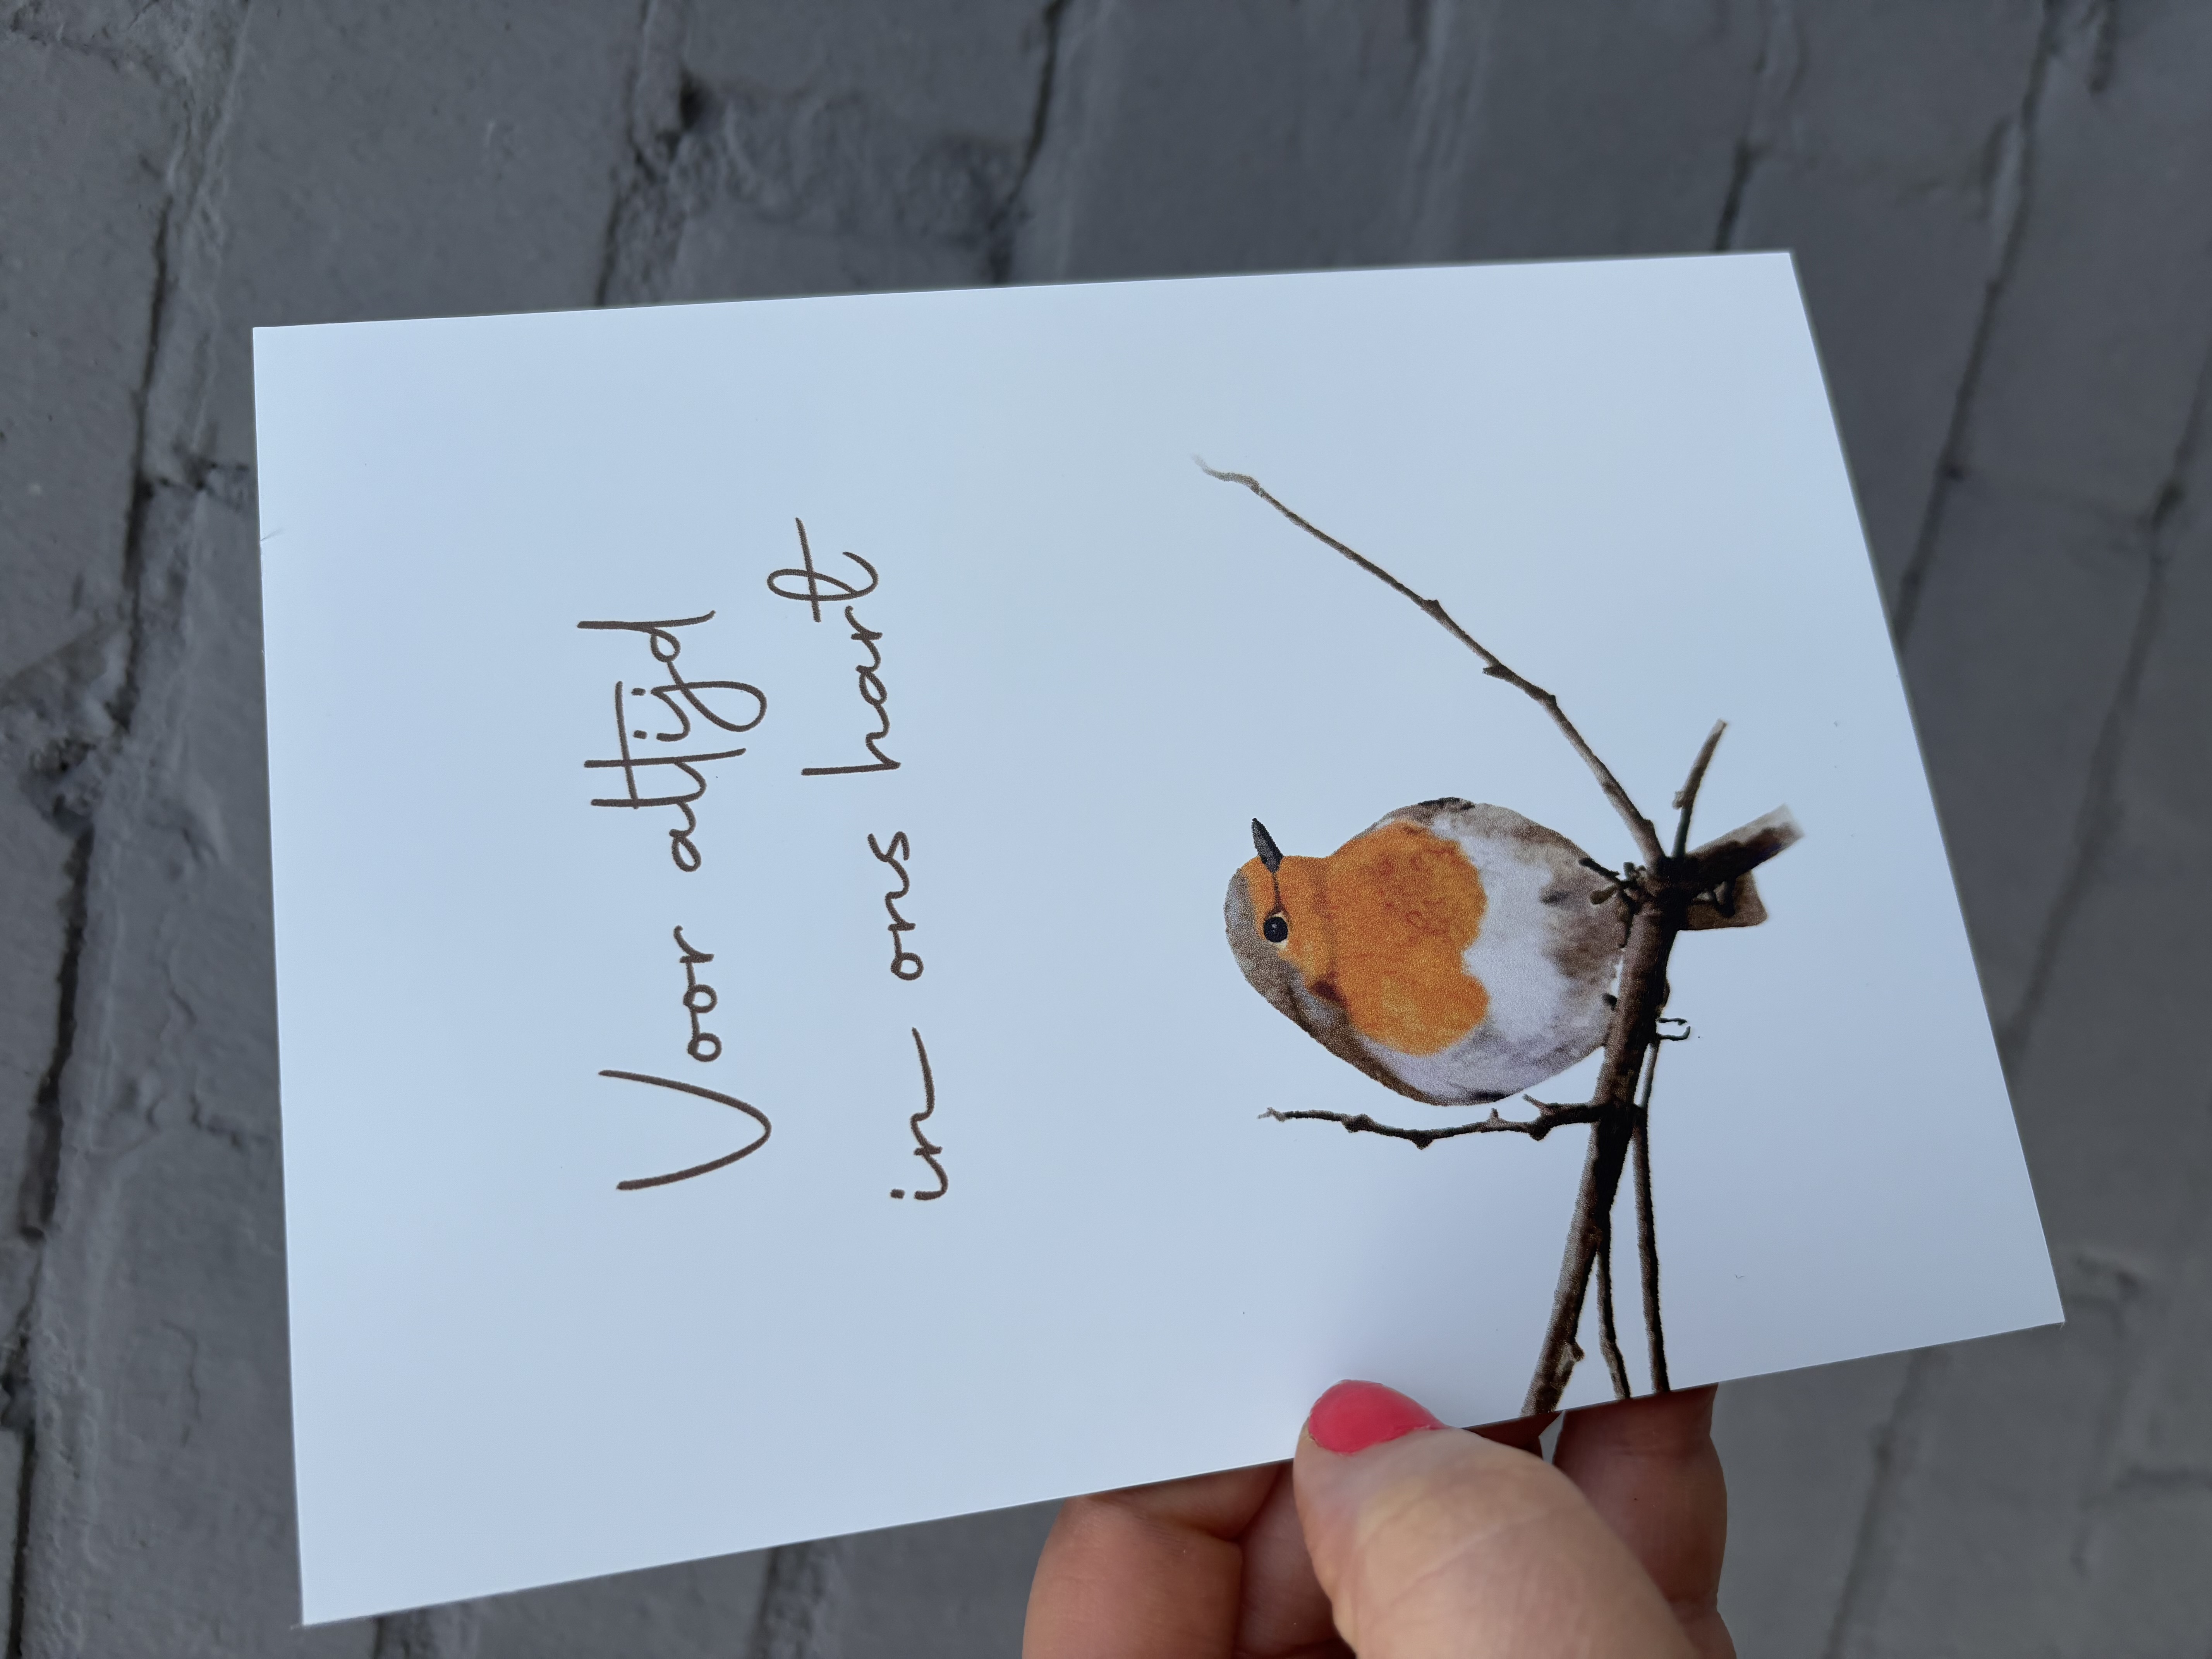 Voor altijd
in ons hart